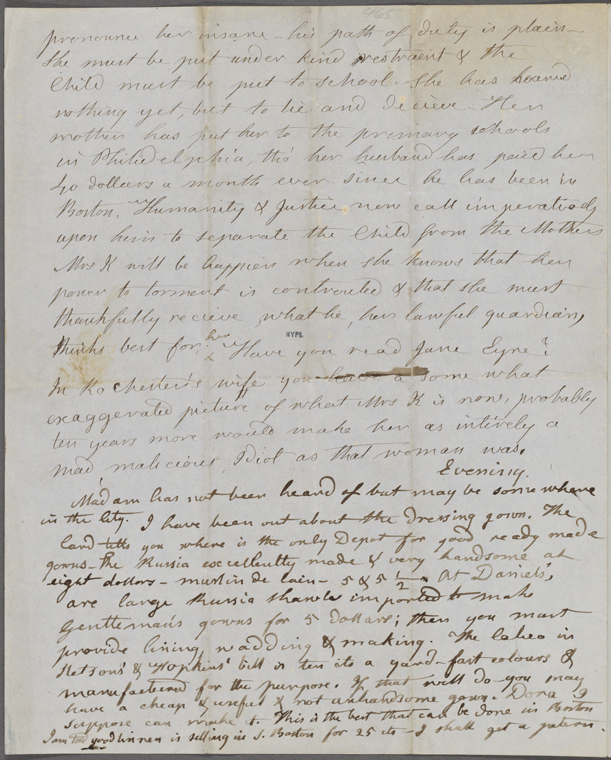 465
pronounce her insane - his path of duty is plain -
she must be put under kind restraent & the
Child must be put to school. She has learned
nothing yet, but to lie and decieve - Her
mother has put her to the primary schools
in Philidelphia, tho' her husband has paid her
40 dolleers a month ever since he has been in
Boston. Humanity & Justice now call imperatively
upon him to separate the Child from the Mother
Mrs K will be happier when she knows that her
power to torment is controuled & that she must
thankfully recieve what he, her lawful guardian,
thinks best for her. Have you read Jane Eyre?
NYPL
In Rochester's wife you have a some what
exaggerated picture of what Mrs K is now, probably
ten years more would make her as intirely a
mad malicious Idiot as that woman was.
Evening.
Madam has not been heard of but may be some where
in the City. I have been out about the dressing gown. The
Card tells you where is the only Depot for good ready made
gowns - the Russia excellently made & very handsome at
eight dollars - muslin de lain - 5 & 5 1/2 - At Daniels',
are large Russia shawls imported to make
Gentlemans gowns for 5 dollars; then you must
provide lining, wadding & making. The Calico in
Stetson's & Hopkins' bill is ten cts a yard - fast colours &
manufactured for the purpose. If that will do - you may
have a cheap & useful & not unhandsome gown - Dora I
suppose can make it. This is the best that can be done in Boston
I am told good linnen is selling in S. Boston for 25 cts - I shall get a pattern.